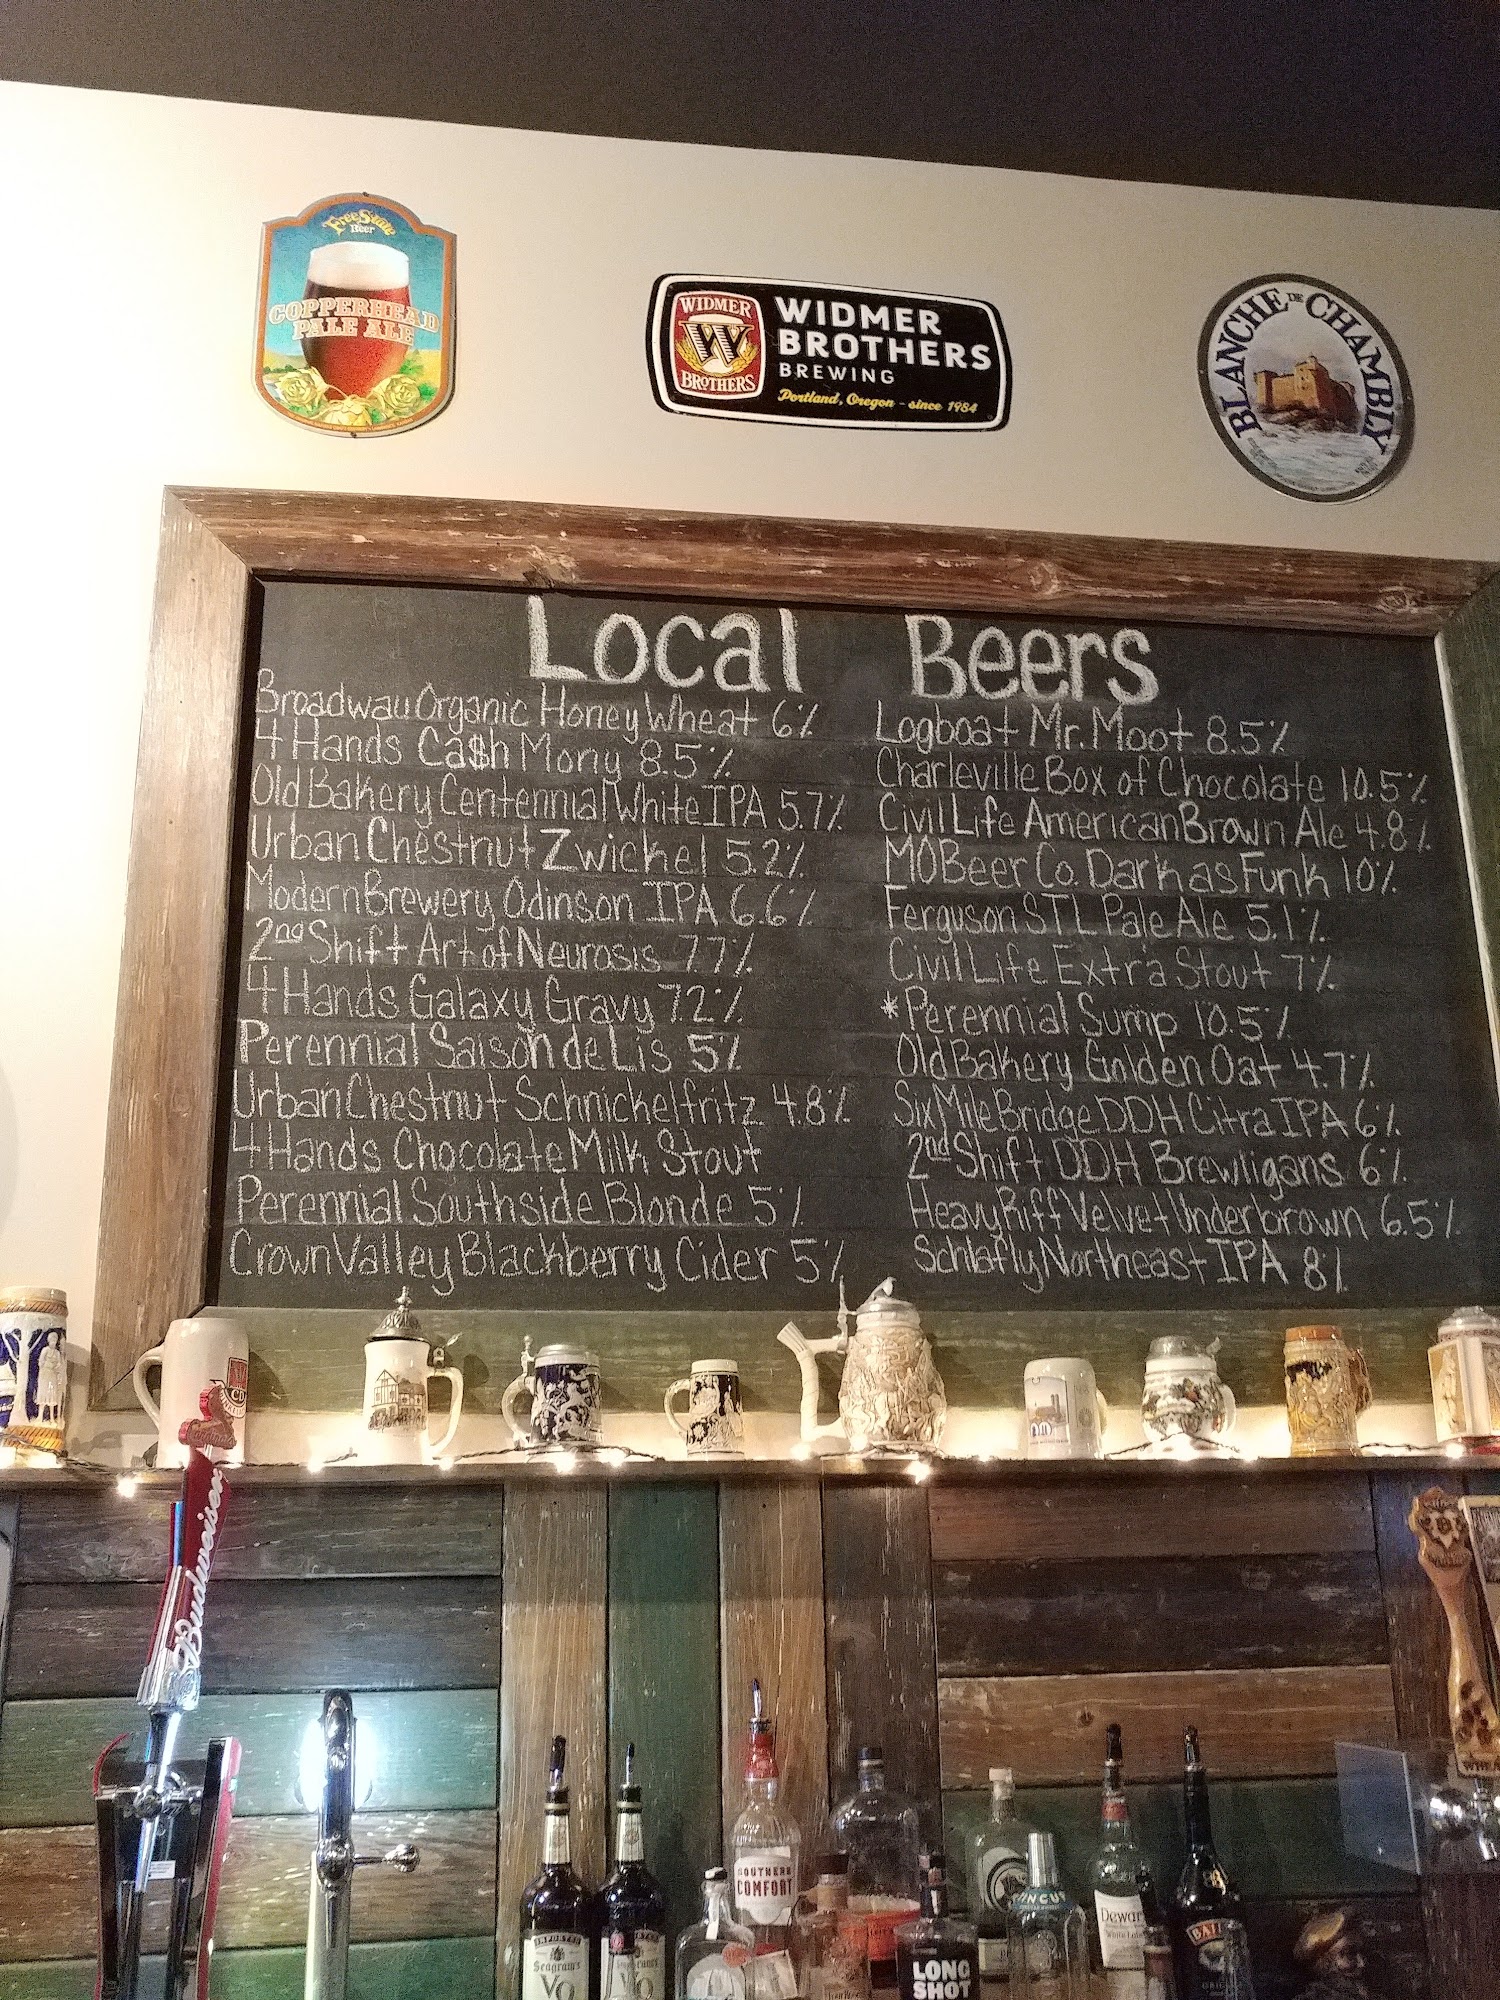 FreeState
Beer
COPPERHEAD
PALE ALE
WIDMER
W
BROTHERS
WIDMER
BROTHERS
BREWING
Portland, Oregon - since 1984
BLANCHE DE CHAMBLY
Local Beers
Broadway Organic Honey Wheat 6%
4 Hands Ca$h Mony 8.5%
Old Bakery Centennial White IPA 5.7%
Urban Chestnut Zwickel 5.2%
Modern Brewery Odinson IPA 6.6%
2nd Shift Art of Neurosis 7.7%
4 Hands Galaxy Gravy 7.2%
Perennial Saison de Lis 5%
Urban Chestnut Schnickelfritz 4.8%
4 Hands Chocolate Milk Stout
Perennial Southside Blonde 5%
Crown Valley Blackberry Cider 5%
Logboat Mr. Moot 8.5%
Charleville Box of Chocolate 10.5%
Civil Life American Brown Ale 4.8%
MO Beer Co. Dark as Funk 10%
Ferguson STL Pale Ale 5.1%
Civil Life Extra Stout 7%
*Perennial Sump 10.5%
Old Bakery Golden Oat 4.7%
Six Mile Bridge DDH Citra IPA 6%
2nd Shift DDH Brewligans 6%
Heavy Riff Velvet Underbrown 6.5%
Schlafly Northeast IPA 8%
Budweiser
IMPORTED
Seagram's
VO
Seagram's
VO
SOUTHERN
COMFORT
LONG
SHOT
Dewar
White Label
BAIL